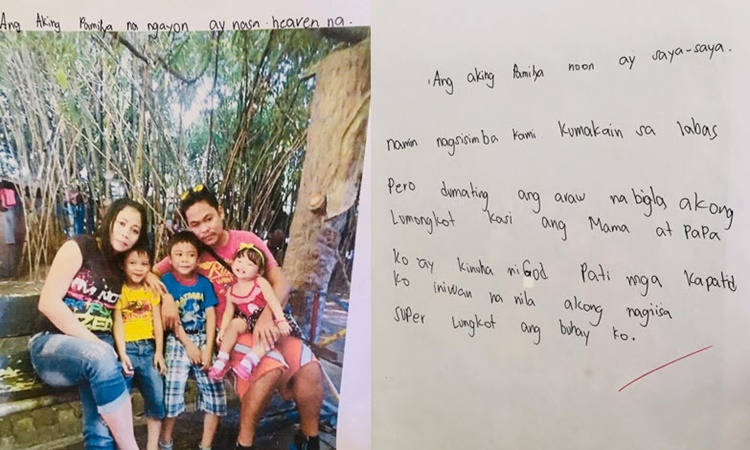 Ang Aking Pamilya na ngayon ay nasa heaven na.
Ang aking Pamilya noon ay saya-saya.
namin nagsisimba kami. Kumakain sa labas
Pero dumating ang araw na bigla akong
Lumongkot kasi ang Mama at PaPa
ko ay kinuha ni God Pati mga kapatid
ko iniwan na nila akong nagiisa
super Lungkot ang buhay ko.
BATMAN